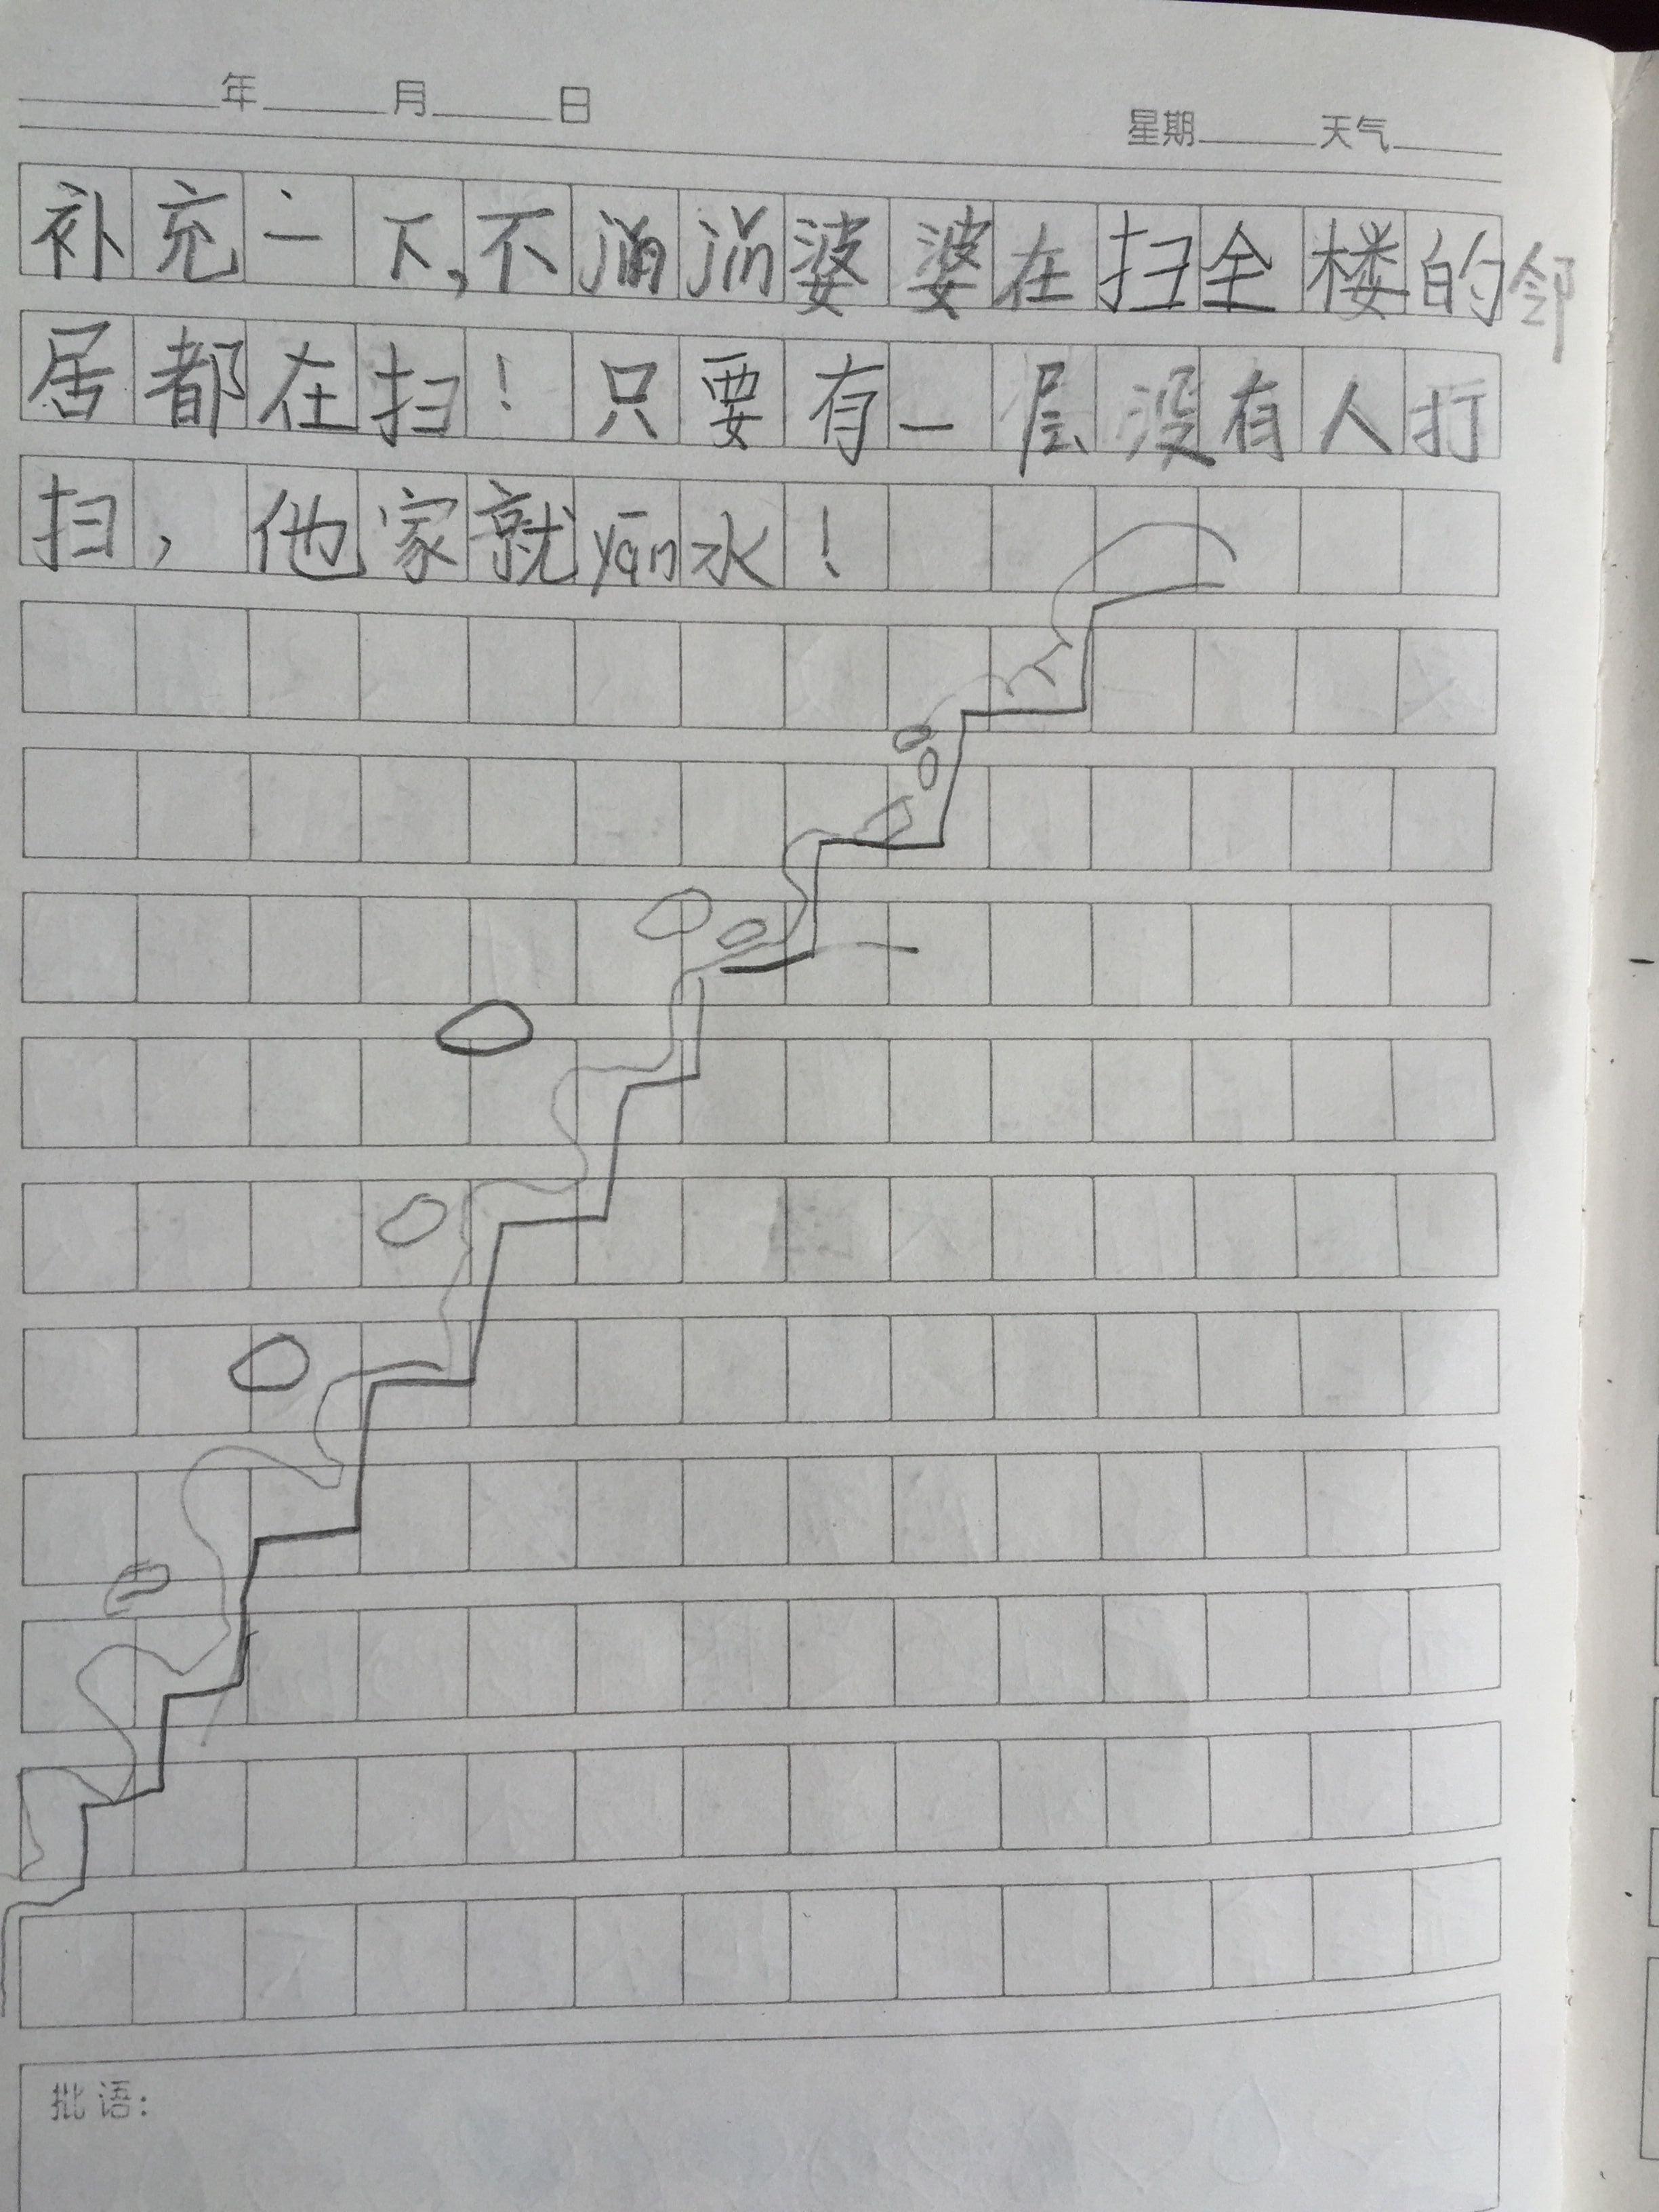 年 月 日 星期 天气
补充一下,不 jǐn jǐn 婆婆在扫全楼的邻
居都在扫!只要有一层没有人打
扫,他家就yān水!
批语: